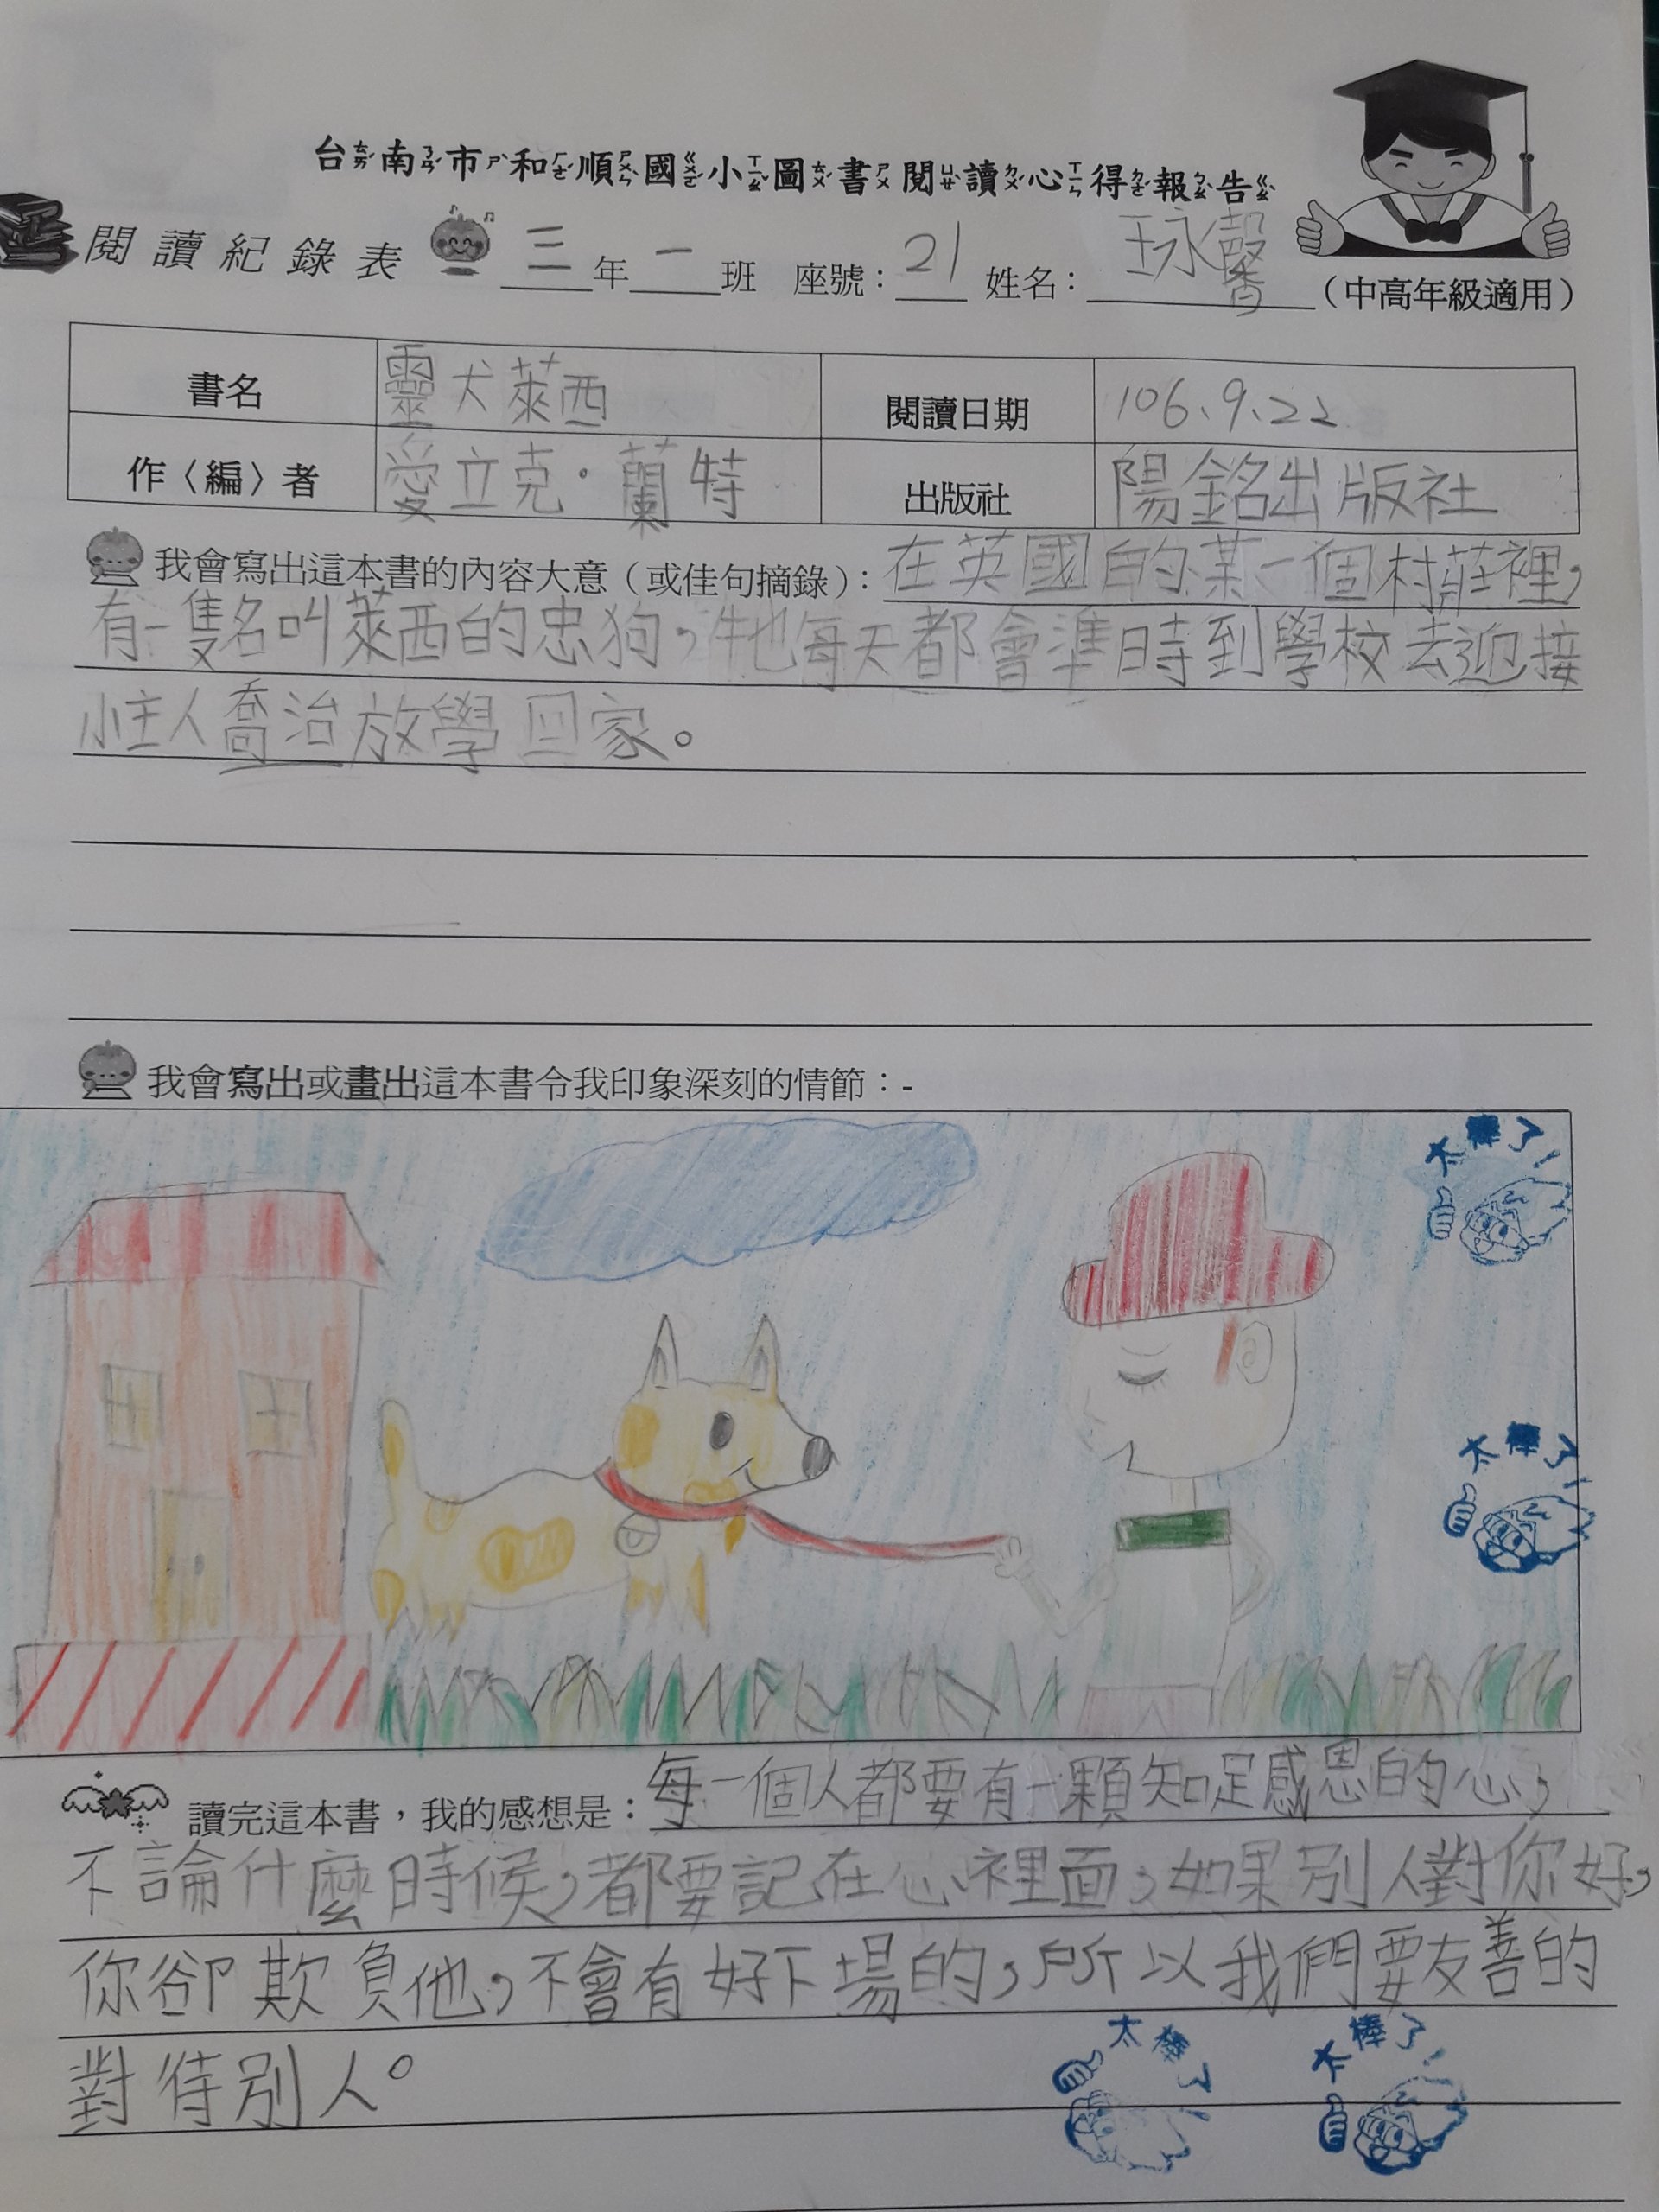 台ㄊㄞˊ南ㄋㄢˊ市ㄕˋ和ㄏㄜˊ順ㄕㄨㄣˋ國ㄍㄨㄛˊ小ㄒㄧㄠˇ圖ㄊㄨˊ書ㄕㄨ閱ㄩㄝˋ讀ㄉㄨˊ心ㄒㄧㄣ得ㄉㄜˊ報ㄅㄠˋ告ㄍㄠˋ
閱讀紀錄表 三年一班 座號:21 姓名:王永馨(中高年級適用)
書名 靈犬萊西 閱讀日期 106、9、22
作〈編〉者 愛立克·蘭特 出版社 陽銘出版社
我會寫出這本書的內容大意(或佳句摘錄):在英國的某一個村莊裡,
有一隻名叫萊西的忠狗,牠每天都會準時到學校去迎接
小主人喬治放學回家。
我會寫出或畫出這本書令我印象深刻的情節:-
太棒了!
太棒了!
讀完這本書,我的感想是:每一個人都要有一顆知足感恩的心,
不論什麼時候,都要記在心裡面,如果別人對你好,
你卻欺負他,不會有好下場的,所以我們要友善的
對待別人。
太棒了!
太棒了!